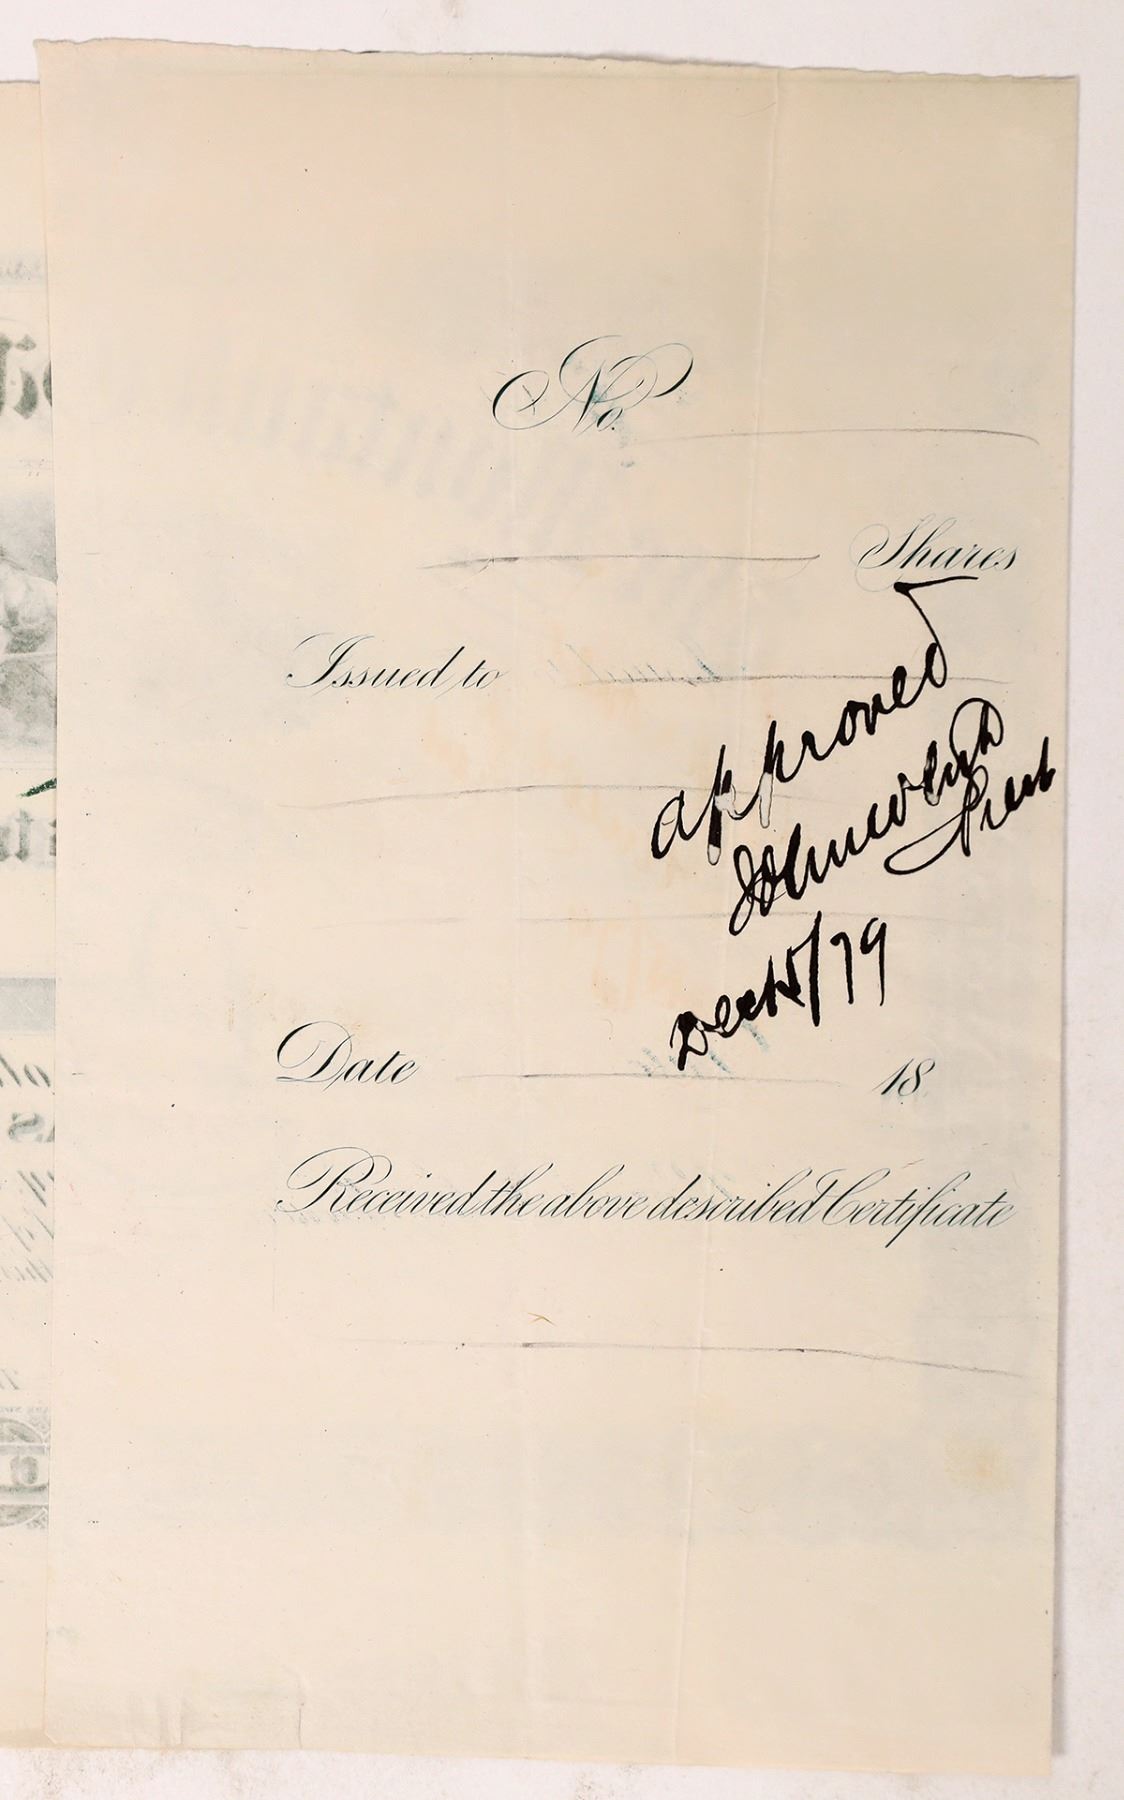 No.
Shares
Issued to
approved
Prest
Dec 15/79
Date 18
Received the above described Certificate